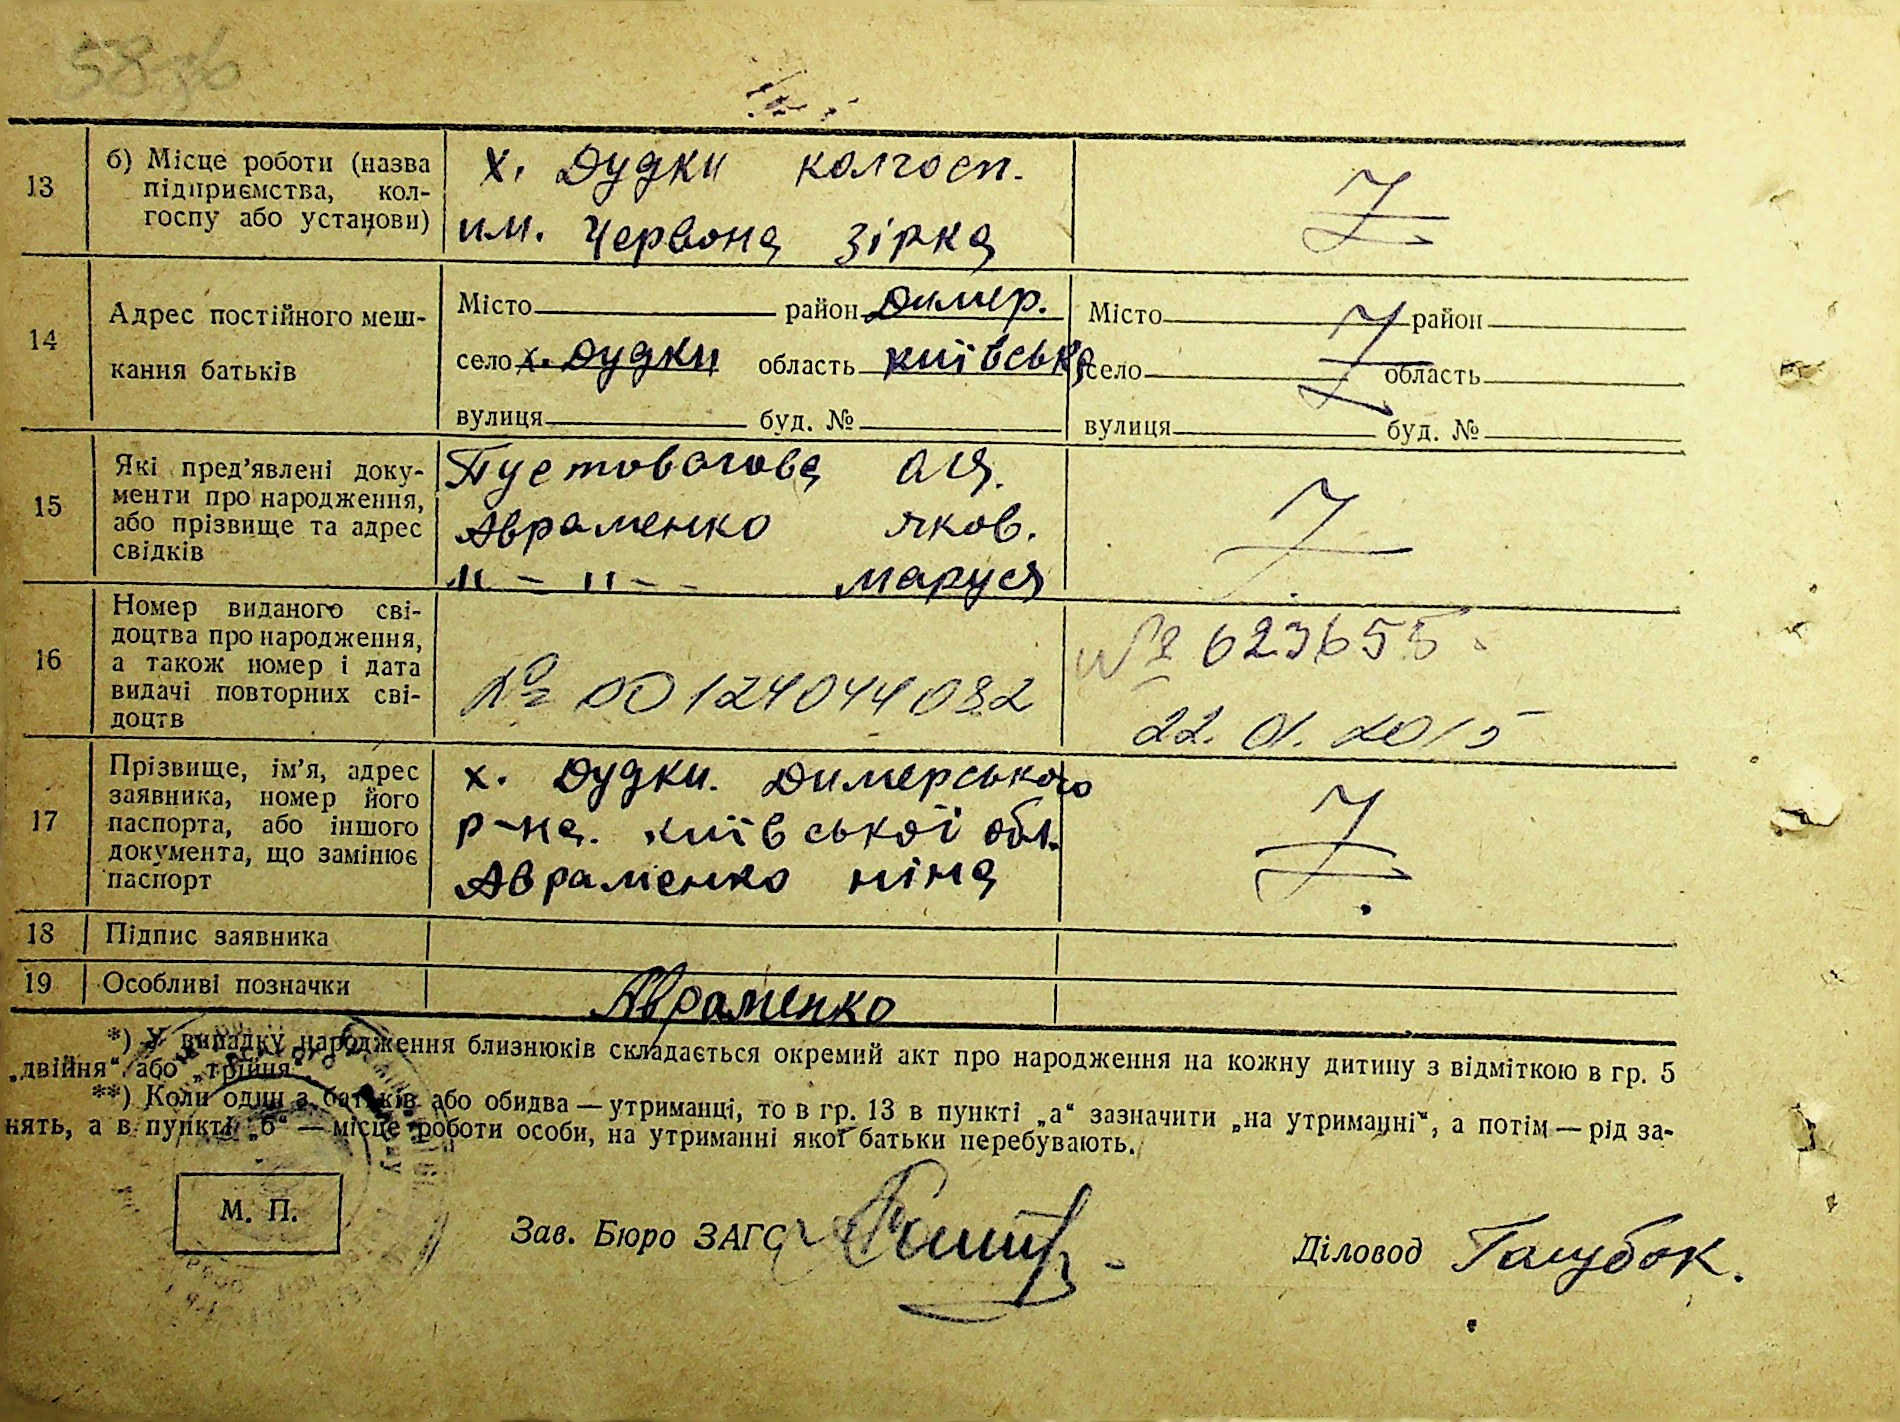 58зв
13
б) Місце роботи (назва
підприємства, кол-
госпу або установи)
х. Дудки колгосп.
им. Червона зірка
14
Адрес постійного меш-
кання батьків
Місто район Димер.
село х. Дудки область київська
вулиця буд. №
Місто район
село область
вулиця буд. №
15
Які пред’явлені доку-
менти про народження,
або прізвище та адрес
свідків
Пустовогова Ася.
Авраменко Яков.
"–"– Маруся
16
Номер виданого сві-
доцтва про народження,
а також номер і дата
видачі повторних сві-
доцтв
№ 00124044082
№ 623655
22. 01. 2015
17
Прізвище, ім’я, адрес
заявника, номер його
паспорта, або іншого
документа, що замінює
паспорт
х. Дудки. Димерського
р-на. київської обл.
Авраменко ніна
18
Підпис заявника
19
Особливі позначки
Авраменко
*) У випадку народження близнюків складається окремий акт про народження на кожну дитину з відміткою в гр. 5
„двійня“ або „трійня“
**) Коли один з батьків або обидва — утриманці, то в гр. 13 в пункті „а“ зазначити „на утриманні“, а потім — рід за-
нять, а в пункті „б“ — місце роботи особи, на утриманні якої батьки перебувають.
М. П.
Зав. Бюро ЗАГС
Діловод Голубок.